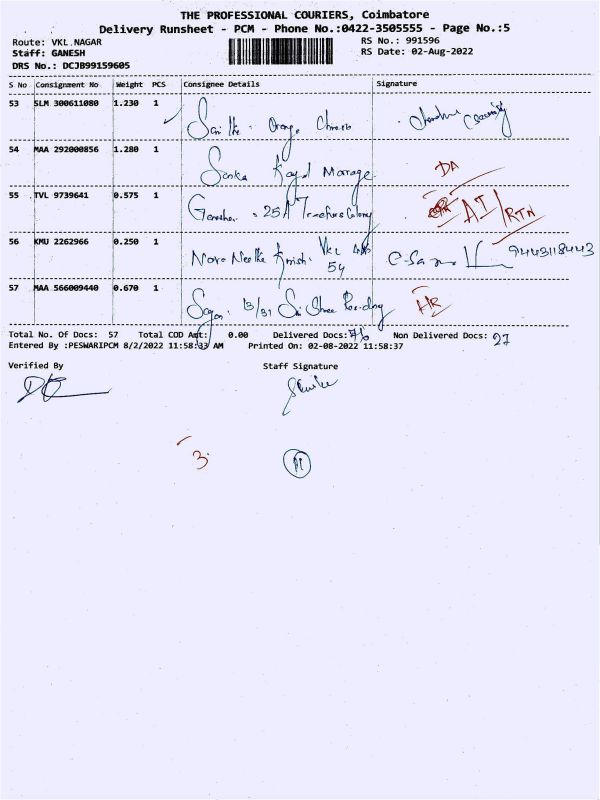 THE PROFESSIONAL COURIERS, Coimbatore
Delivery Runsheet - PCM - Phone No.:0422-3505555 - Page No.:5
Route: VKL NAGAR
RS No.: 991596
Staff: GANESH
RS Date: 02-Aug-2022
DRS No.: DCJB99159605
S No Consignment No Weight PCS Consignee Details Signature
53 SLM 300611080 1.230 1
Orange
54 MAA 292000856 1.280 1
DA
55 TVL 9739641 0.575 1
Ganesha 25A AI/RTN
56 KMU 2262966 0.250 1
54 9443118443
57 MAA 566009440 0.670 1
Sagar 13/31 Sai Shree HR
Total No. Of Docs: 57 Total COD Amt: 0.00 Delivered Docs: Non Delivered Docs: 27
Entered By :PESWARIPCM 8/2/2022 11:58:33 AM Printed On: 02-08-2022 11:58:37
Verified By Staff Signature
3
11